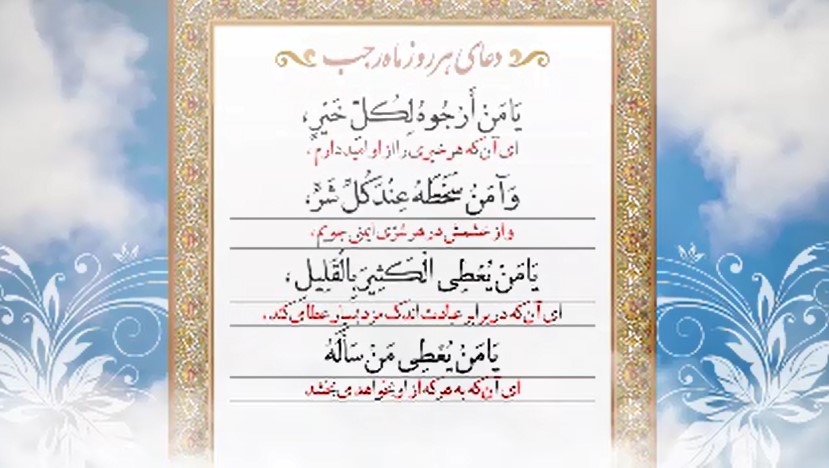 دعای هر روز ماه رجب
يَا مَنْ أَرْجُوهُ لِكُلِّ خَيْرٍ،
ای آن‌که هر خیری را از او امید دارم،
وَ آمَنُ سَخَطَهُ عِنْدَ كُلِّ شَرٍّ،
و از خشمش در هر شرّی ایمنی جویم،
يَا مَنْ يُعْطِی الْكَثِيرَ بِالْقَلِيلِ،
ای آن‌که در برابر عبادت اندک مزد بسیار عطا می‌کند،
يَا مَنْ يُعْطِی مَنْ سَأَلَهُ
ای آن‌که به هرکه از او بخواهد می‌بخشد